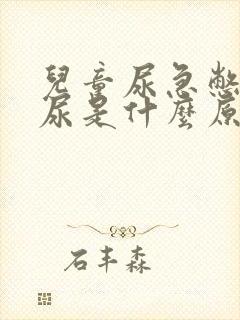 兒童尿急憋
尿是什麼原
石丰森